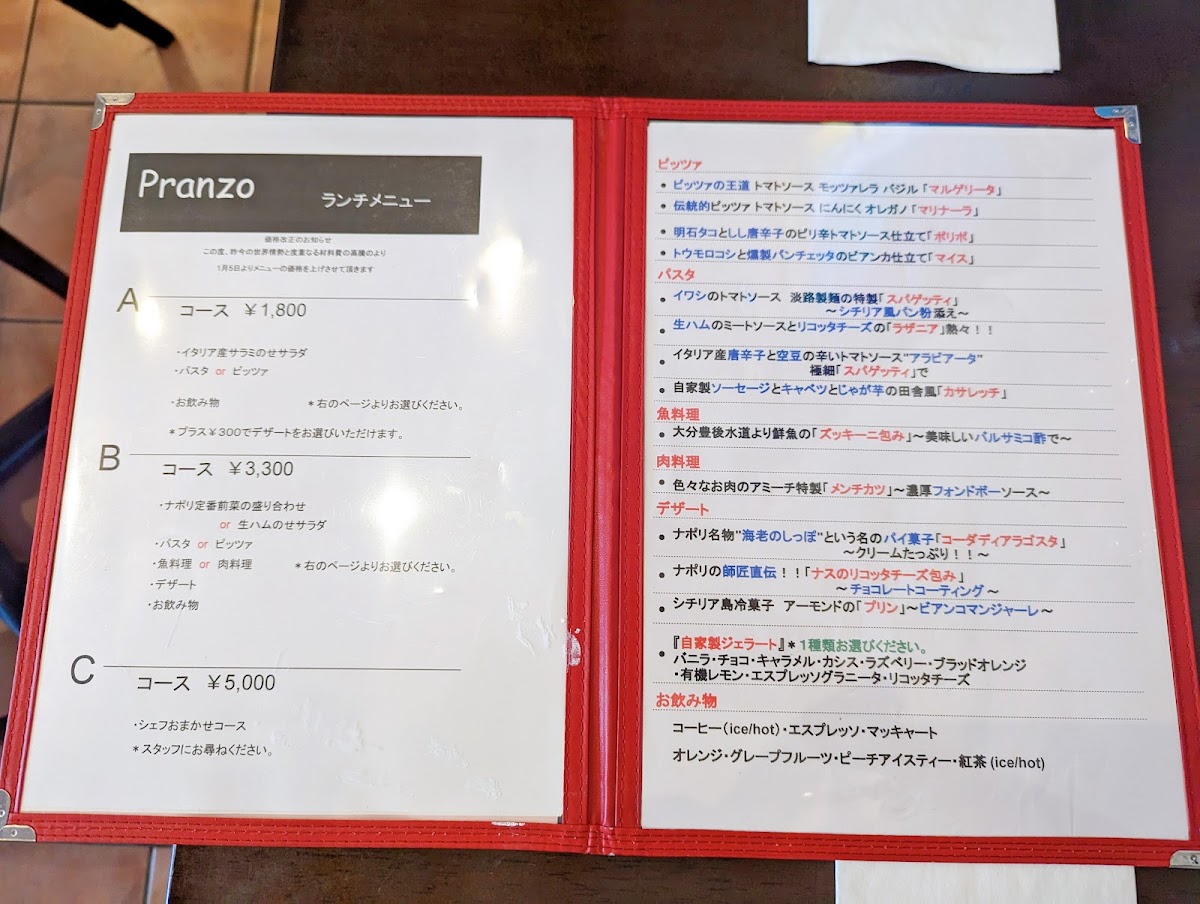 Pranzo
ランチメニュー
価格改正のお知らせ
この度、昨今の世界情勢と度重なる材料費の高騰のより
1月5日よりメニューの価格を上げさせて頂きます
A
コース ￥1,800
・イタリア産サラミのせサラダ
・パスタ or ピッツァ
・お飲み物 ＊右のページよりお選びください。
＊プラス￥300でデザートをお選びいただけます。
B
コース ￥3,300
・ナポリ定番前菜の盛り合わせ
or 生ハムのせサラダ
・パスタ or ピッツァ
・魚料理 or 肉料理 ＊右のページよりお選びください。
・デザート
・お飲み物
C
コース ￥5,000
・シェフおまかせコース
＊スタッフにお尋ねください。
ピッツァ
• ピッツァの王道 トマトソース モッツァレラ バジル「マルゲリータ」
• 伝統的ピッツァ トマトソース にんにく オレガノ「マリナーラ」
• 明石タコとしし唐辛子のピリ辛トマトソース仕立て「ポリポ」
• トウモロコシと燻製パンチェッタのビアンカ仕立て「マイス」
パスタ
• イワシのトマトソース 淡路製麺の特製「スパゲッティ」
～シチリア風パン粉添え～
• 生ハムのミートソースとリコッタチーズの「ラザニア」熱々！！
• イタリア産唐辛子と空豆の辛いトマトソース"アラビアータ"
極細「スパゲッティ」で
• 自家製ソーセージとキャベツとじゃが芋の田舎風「カサレッチ」
魚料理
• 大分豊後水道より鮮魚の「ズッキーニ包み」～美味しいバルサミコ酢で～
肉料理
• 色々なお肉のアミーチ特製「メンチカツ」～濃厚フォンドボーソース～
デザート
• ナポリ名物"海老のしっぽ"という名のパイ菓子「コーダディアラゴスタ」
～クリームたっぷり！！～
• ナポリの師匠直伝！！「ナスのリコッタチーズ包み」
～チョコレートコーティング～
• シチリア島冷菓子 アーモンドの「プリン」～ビアンコマンジャーレ～
• 『自家製ジェラート』＊1種類お選びください。
バニラ・チョコ・キャラメル・カシス・ラズベリー・ブラッドオレンジ
・有機レモン・エスプレッソグラニータ・リコッタチーズ
お飲み物
コーヒー（ice/hot）・エスプレッソ・マッキャート
オレンジ・グレープフルーツ・ピーチアイスティー・紅茶 (ice/hot)